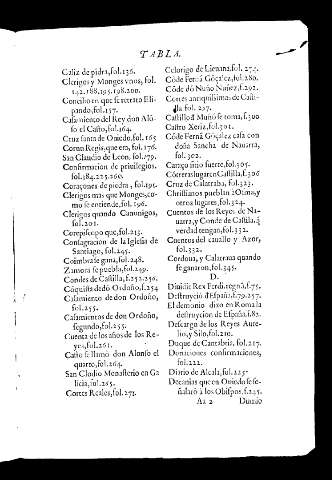 TABLA.
Caliz de pidra, fol.136.
Clerigos y Monges vnos, fol.
142.188,195,198.200.
Concilio en que se retrato Eli-
pando, fol.157.
Casamiento del Rey don Alõ-
so el Casto, fol.164.
Cruz santa de Oviedo, fol.165.
Cortes Regis, que era, fol.176.
San Claudio de Leon, fol.179.
Confirmacion de privilegios,
fol.184.225.260.
Coraçones de piedra, fol.195.
Clerigos mas que Monges, co-
mo se entiende, fol.196.
Clerigos quando Canonigos,
fol.201.
Corepiscopo que, fol.213.
Consagracion de la Iglesia de
Santiago, fol.245.
Coimbra se gana, fol.248.
Zamora se puebla, fol.249.
Condes de Castilla, f.252.256.
Cõquista de dõ Ordoño, f.254
Casamiento de don Ordoño,
fol.255.
Casamientos de don Ordoño,
segundo, fol.255.
Cuenta de los años de los Re-
yes, fol.261.
Caso se llamò don Alonso el
quarto, fol.264.
San Clodio Monasterio en Ga
licia, fol.265.
Cortes Reales, fol.273.
Celorigo de Lievana, fol.274.
Cõde Fernã Gõçalez, fol.280.
Cõde dõ Nuño Nuñez, f.292.
Cortes antiquisimas de Casti-
lla fol. 257.
Castillo d Muñò se toma, f.300
Castro Xeriz, fol.301.
Cõde Fernã Gõçalez casa con
doña Sancha de Nauarra,
fol.302.
Caraço sitio fuerte, fol.305.
Corrers lugar en Castilla, f.306
Cruz de Calatraba, fol.323.
Christianos pueblan a Osma, y
otros lugares, fol.324.
Cuentos de los Reyes de Na-
uarra, y Conde de Castilla, q̃
verdad tengan, fol.332.
Cuentos del cauallo y Azor,
fol.332.
Cordoua, y Calatraua quando
se ganaron, fol.345.
D.
Diuisit Rex Ferdi. regnũ, f.75.
Destruyciõ d España, f.79.257.
El demonio dixo en Roma la
destruycion de España, f.82.
Descargo de los Reyes Aure-
lio, y Silo, fol.210.
Duque de Cantabria, fol.217.
Donaciones confirmaciones,
fol.222.
Diario de Alcala, fol.225.
Decanias que en Oviedo se se-
ñalarõ a los Obispos, f.245.
Aa 2 Diario